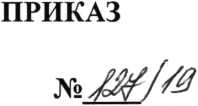 ПРИКАЗ
№ 127/19